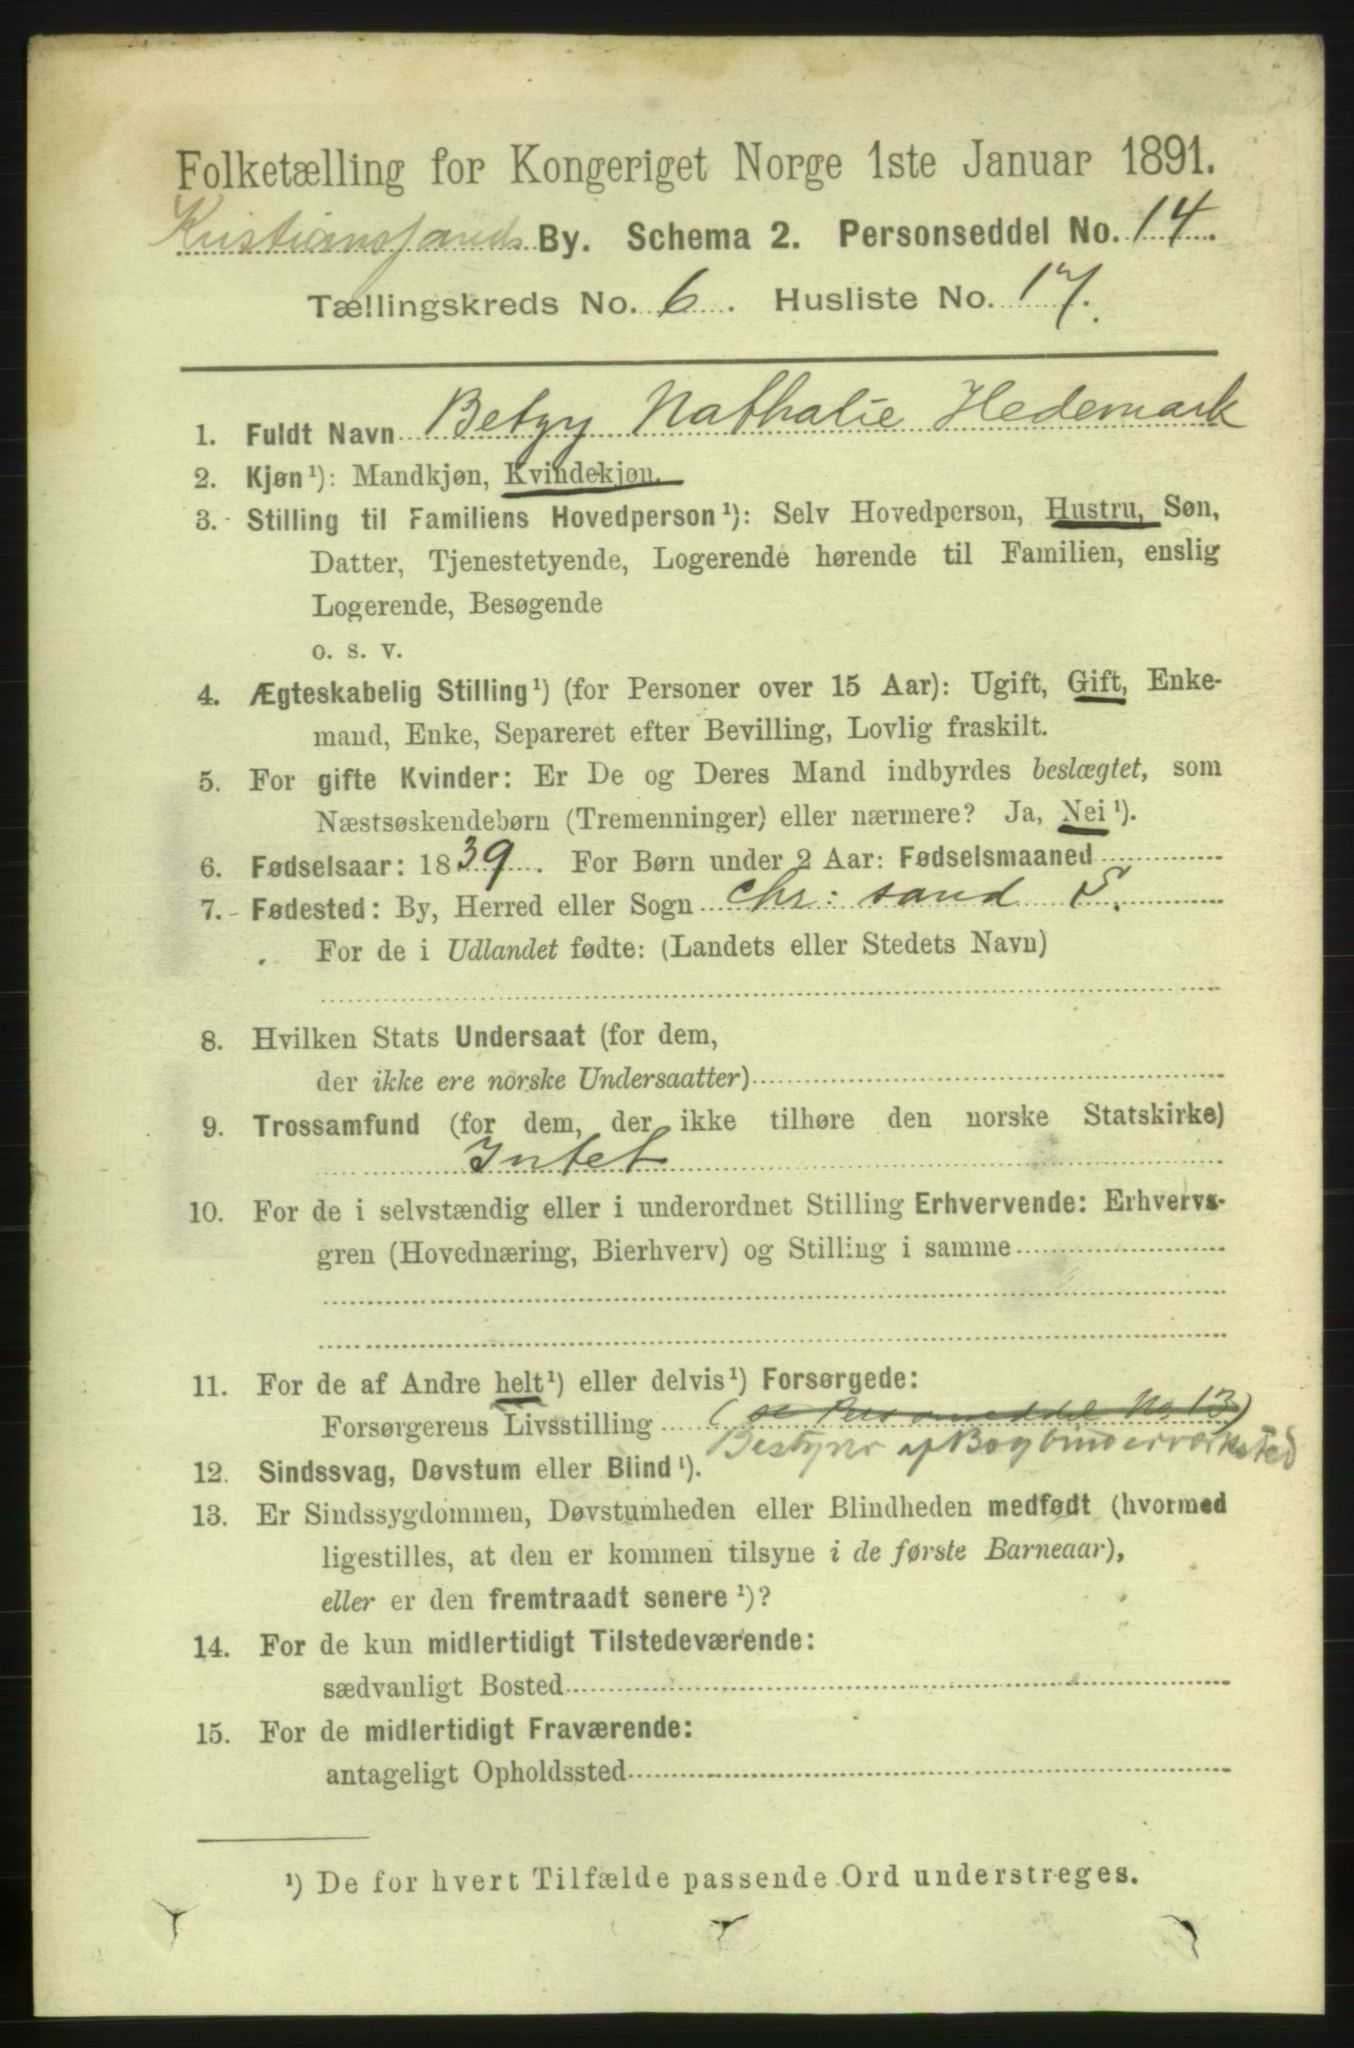 Folketælling for Kongeriget Norge 1ste Januar 1891.
Kristianssands By. Schema 2. Personseddel No. 14.
Tællingskreds No. 6. Husliste No. 17.
1. Fuldt Navn Betzy Nathalie Hedemark
2. Kjøn¹): Mandkjøn, Kvindekjøn.
3. Stilling til Familiens Hovedperson¹): Selv Hovedperson, Hustru, Søn,
Datter, Tjenestetyende, Logerende hørende til Familien, enslig
Logerende, Besøgende
o. s. v.
4. Ægteskabelig Stilling¹) (for Personer over 15 Aar): Ugift, Gift, Enke-
mand, Enke, Separeret efter Bevilling, Lovlig fraskilt.
5. For gifte Kvinder: Er De og Deres Mand indbyrdes beslægtet, som
Næstsøskendebørn (Tremenninger) eller nærmere? Ja, Nei¹).
6. Fødselsaar: 1839. For Børn under 2 Aar: Fødselsmaaned
7. Fødested: By, Herred eller Sogn Chr: sand S.
For de i Udlandet fødte: (Landets eller Stedets Navn)
8. Hvilken Stats Undersaat (for dem,
der ikke ere norske Undersaatter)
9. Trossamfund (for dem, der ikke tilhøre den norske Statskirke)
Intet
10. For de i selvstændig eller i underordnet Stilling Erhvervende: Erhvervs-
gren (Hovednæring, Bierhverv) og Stilling i samme
11. For de af Andre helt¹) eller delvis¹) Forsørgede:
Forsørgerens Livsstilling (se Personseddel No 13)
Bestyrer af Bogbinderværksted
12. Sindssvag, Døvstum eller Blind¹).
13. Er Sindssygdommen, Døvstumheden eller Blindheden medfødt (hvormed
ligestilles, at den er kommen tilsyne i de første Barneaar),
eller er den fremtraadt senere¹)?
14. For de kun midlertidigt Tilstedeværende:
sædvanligt Bosted
15. For de midlertidigt Fraværende:
antageligt Opholdssted
¹) De for hvert Tilfælde passende Ord understreges.